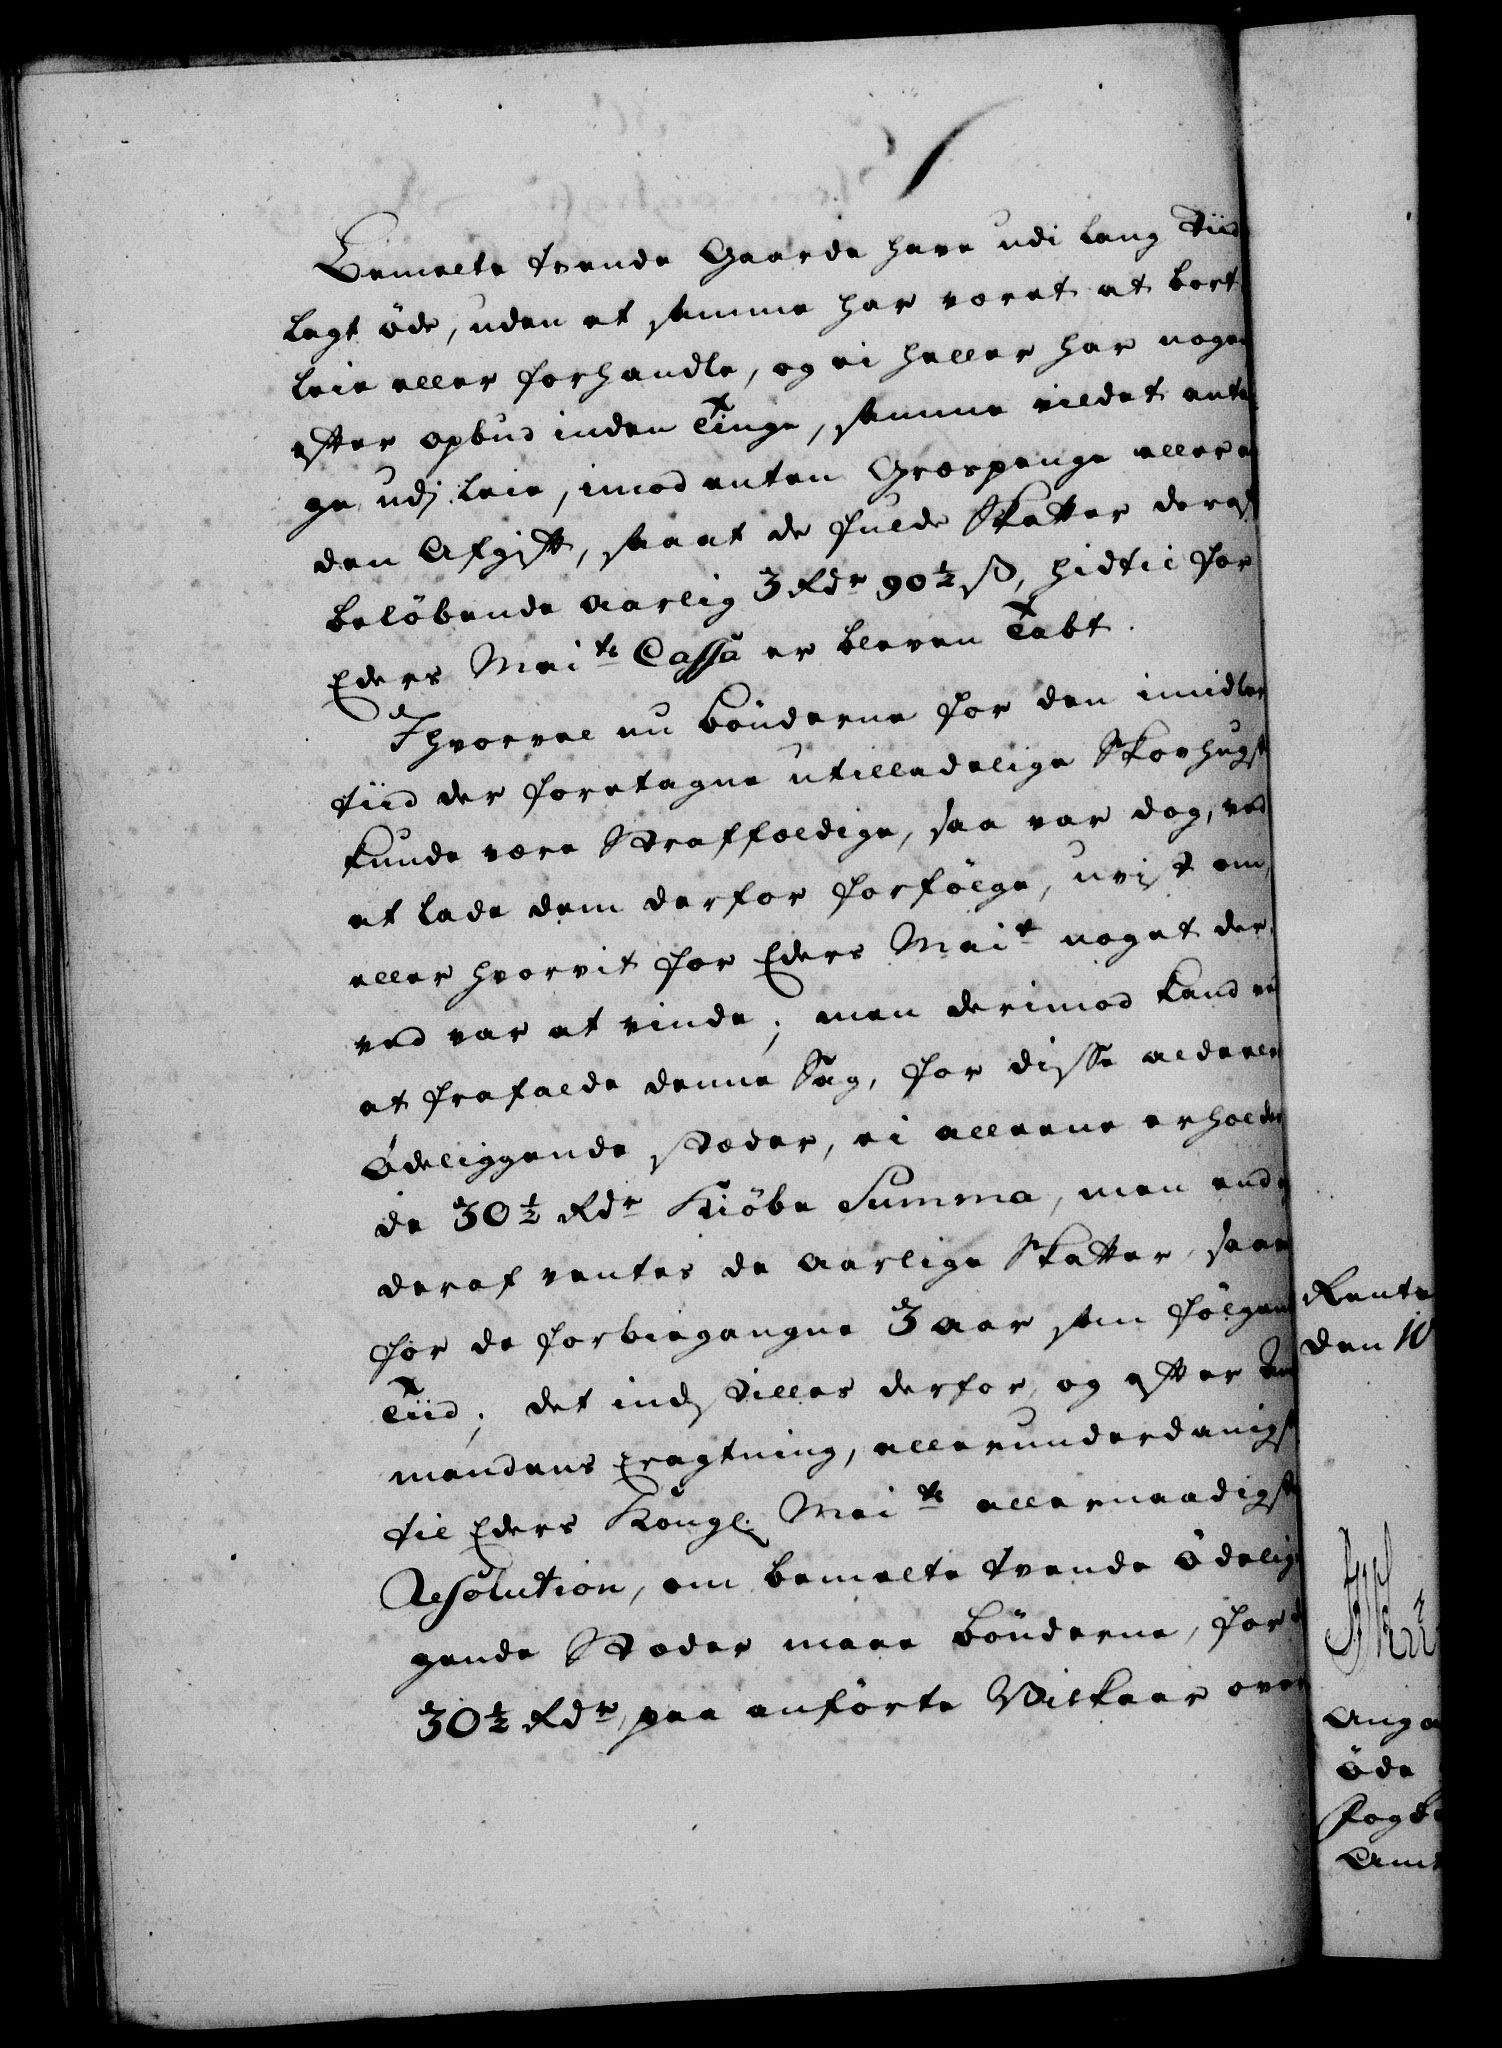 Bemelte tvende Gaarde have udi lang Tiid
lagt öde, uden at samme har været at bort
leie eller forhandle, og ei heller har nogen
efter opbud inden Tinge, samme vildet anta
ge udj leie, imod enten Græspenge eller an
den Afgift, saa at de fulde Skatter deraf
beløbende aarlig 3 Rdr 90½ ß, hidtil for
Eders Maits Cassa er bleven Tabt.
Ihvorvel nu bönderne for den imidler
tiid der foretagne utilladelige Skovhugst
kunde være Straffældige, saa var dog, ved
at lade dem derfor forfølge, uvist om,
eller hvorvit for Eders Mait noget der
ved var at vinde; men derimod kand ved
at frafalde denne Sag, for disse aldeeles
ödeliggende stæder, ei alleene erholdes
de 30½ Rdr Kiöbe Summa, men endog
deraf ventes de aarlige Skatter, saa
for de forbiegangne 3 aar som fölgende
Tiid; det indstilles derfor, og efter
mandens Eragtning, allerunderdanigst
til Eders Kongl. Maits allernaadigste
Resolution, om bemelte tvende ödelig
gende Stæder maae bönderne, for de
30½ Rdr, paa anförte Vilkaar over
Rente
den 10
Anga
öde
fogde
Amt